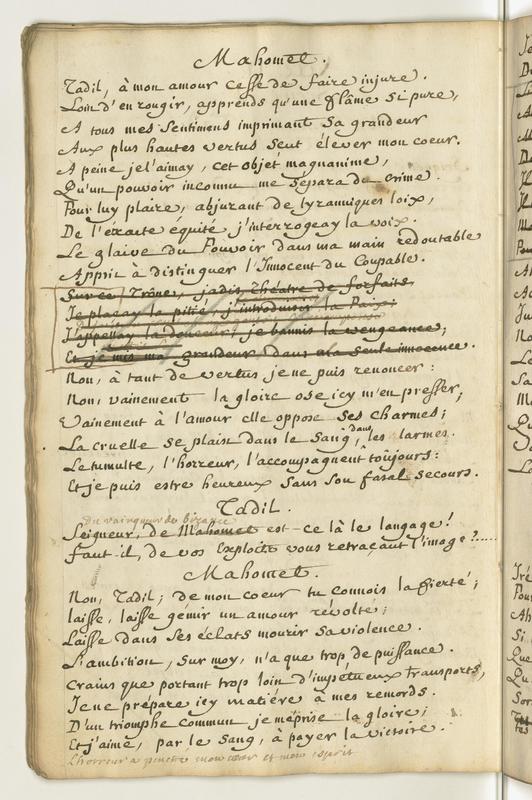 Mahomet.
Tadil, à mon amour cesse de faire injure.
Loin d'en rougir, apprends qu'une flâme si pure,
A tous mes Sentimens imprimant Sa grandeur
Aux plus hautes vertus Seut élever mon coeur.
A peine je l'aimay, cet objet magnanime,
Qu'un pouvoir inconnu me Sépara du Crime.
Pour luy plaire, abjurant de tyranniques loix,
De l'éxacte équité j'interrogeay la voix.
Le glaive du Pouvoir dans ma main redoutable
Apprit à distinguer l'Innocent du Coupable.
Sur ce Trône, jadis théatre de forfaits
Je plaçay la pitié, j'introduisis la Paix;
J'appellay la douceur, je bannis la vengeance;
Et je mis ma grandeur dans la Seule innocence.
Non, à tant de vertus je ne puis renoncer:
Non, vainement la gloire ose icy m'en presser;
Vainement à l'amour elle oppose Ses charmes;
La cruelle Se plaist dans le Sang, dans les larmes.
Le tumulte, l'horreur, l'accompagnent toûjours:
Et je puis estre heureux Sans Son fatal Secours.
Tadil.
Du vainqueur de bizance
Seigneur, de Mahomet est-ce là le langage!
Faut-il, de vos Exploits vous retraçant l'image?.....
Mahomet.
Non, Tadil; de mon coeur tu connois la fierté;
laisse, laisse gémir un amour révolté;
Laisse dans Ses éclats mourir Sa violence.
L'ambition, Sur moy, n'a que trop de puissance.
Crains que portant trop loin d'impétueux transports,
Je ne prépare icy matiére à mes remords.
D'un triomphe Commun je méprise la gloire;
Et j'aime, par le Sang, à payer la victoire.
L'horreur a penetré mon coeur et mon esprit